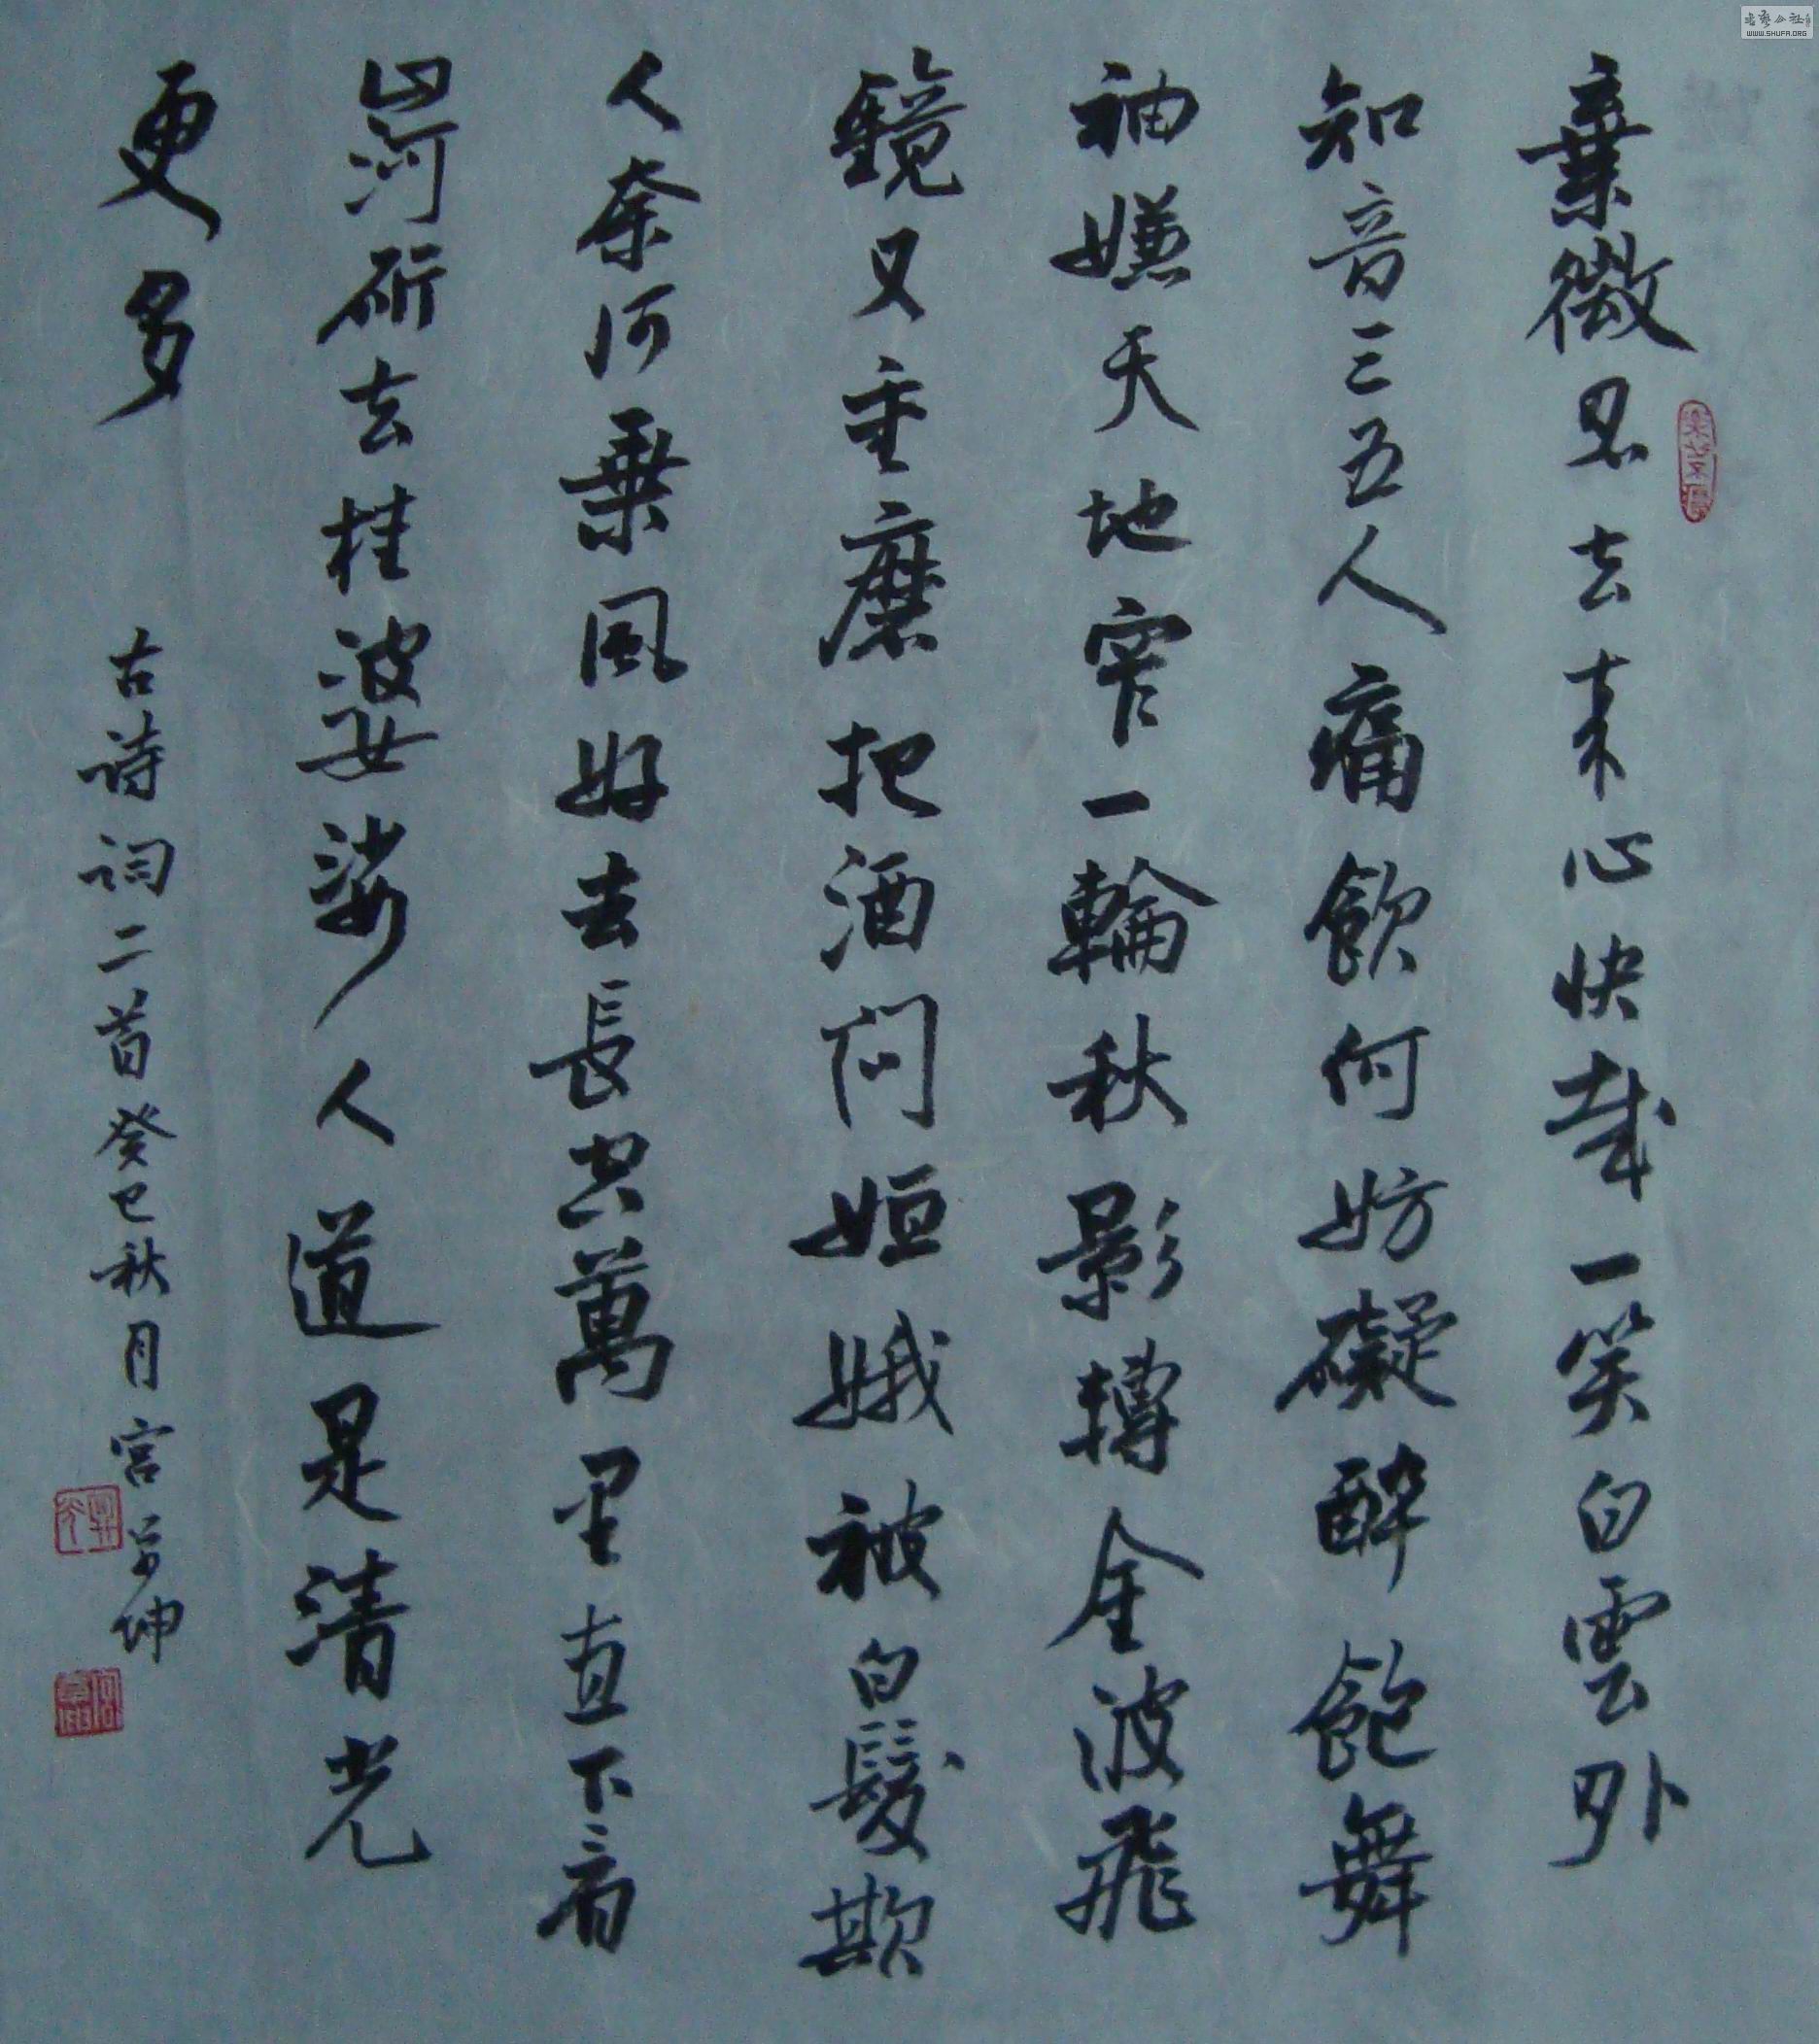 棄微名去来心快哉一笑白雲外
知音三五人痛飲何妨礙醉飽舞
袖嫌天地窄一輪秋影摶金波飛
鏡又重磨把酒问姮娥被白髮欺
人奈何乗風好去長空萬里直下看
山河斫去桂婆娑人道是清光
更多
古詩词二首癸巳秋月宫学坤
WWW.SHUFA.ORG